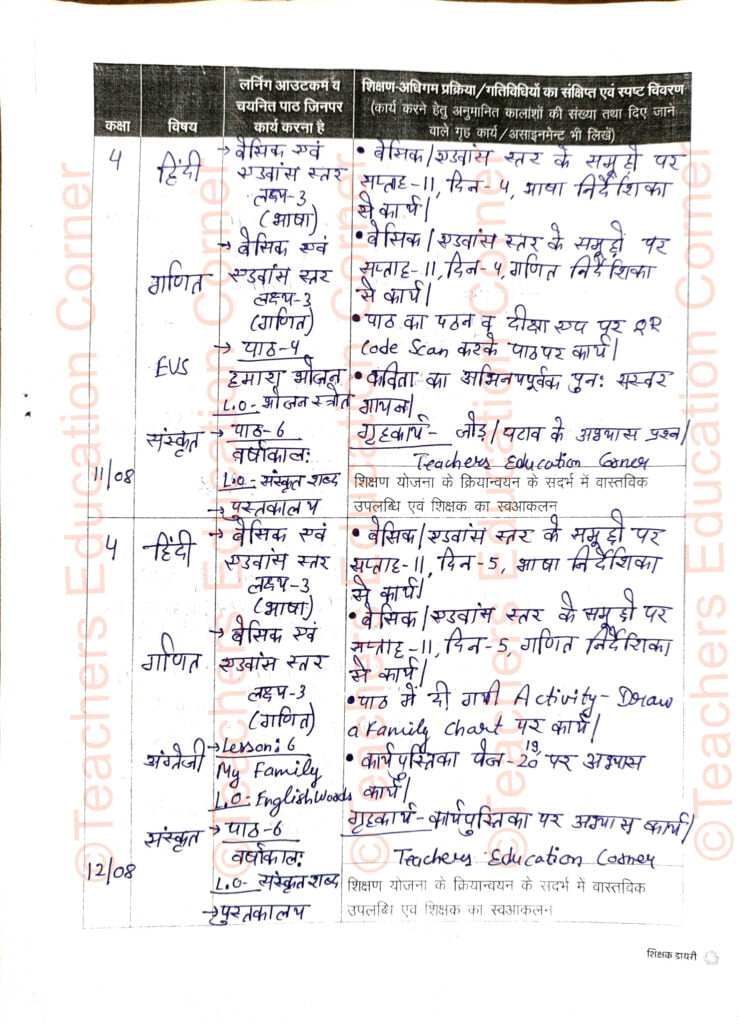 कक्षा
विषय
लर्निंग आउटकम व
चयनित पाठ जिनपर
कार्य करना है
शिक्षण-अधिगम प्रक्रिया/गतिविधियों का संक्षिप्त एवं स्पष्ट विवरण
(कार्य करने हेतु अनुमानित कालांशों की संख्या तथा दिए जाने
वाले गृह कार्य/असाइनमेन्ट भी लिखें)
4
हिंदी
→ बेसिक एवं
एडवांस स्तर
लक्ष्य-3
(भाषा)
• बेसिक/एडवांस स्तर के समूहों पर
सप्ताह-11, दिन-4, भाषा निर्देशिका
से कार्य।
गणित
→ बेसिक एवं
एडवांस स्तर
लक्ष्य-3
(गणित)
• बेसिक/एडवांस स्तर के समूहों पर
सप्ताह-11, दिन-4, गणित निर्देशिका
से कार्य।
EVS
→ पाठ-4
हमारा भोजन
L.O- भोजन स्त्रोत
• पाठ का पठन व दीक्षा एप पर QR
Code Scan करके पाठ पर कार्य।
• कविता का अभिनयपूर्वक पुनः सस्वर
गायन।
संस्कृत
→ पाठ-6
वर्षाकालः
L.O- संस्कृत शब्द
→ पुस्तकालय
गृहकार्य- जोड़/घटाव के अभ्यास प्रश्न।
Teachers Education Corner
11/08
शिक्षण योजना के क्रियान्वयन के सदर्भ में वास्तविक
उपलब्धि एवं शिक्षक का स्वआकलन
4
हिंदी
→ बेसिक एवं
एडवांस स्तर
लक्ष्य-3
(भाषा)
• बेसिक/एडवांस स्तर के समूहों पर
सप्ताह-11, दिन-5, भाषा निर्देशिका
से कार्य।
गणित
→ बेसिक एवं
एडवांस स्तर
लक्ष्य-3
(गणित)
• बेसिक/एडवांस स्तर के समूहों पर
सप्ताह-11, दिन-5, गणित निर्देशिका
से कार्य।
अंग्रेजी
→ Lesson: 6
My Family
L.O- English Woods
• पाठ में दी गयी Activity- Draw
a Family Chart पर कार्य।
• कार्यपुस्तिका पेज- 19, 20 पर अभ्यास
कार्य।
संस्कृत
→ पाठ-6
वर्षाकालः
L.O- संस्कृत शब्द
→ पुस्तकालय
गृहकार्य- कार्यपुस्तिका पर अभ्यास कार्य।
Teachers Education Corner
12/08
शिक्षण योजना के क्रियान्वयन के सदर्भ में वास्तविक
उपलब्धि एवं शिक्षक का स्वआकलन
शिक्षक डायरी
©Teachers Education Corner
©Teachers Education Corner
©Teachers Education Corner
©Teachers Education Corner
©Teachers Education Corner